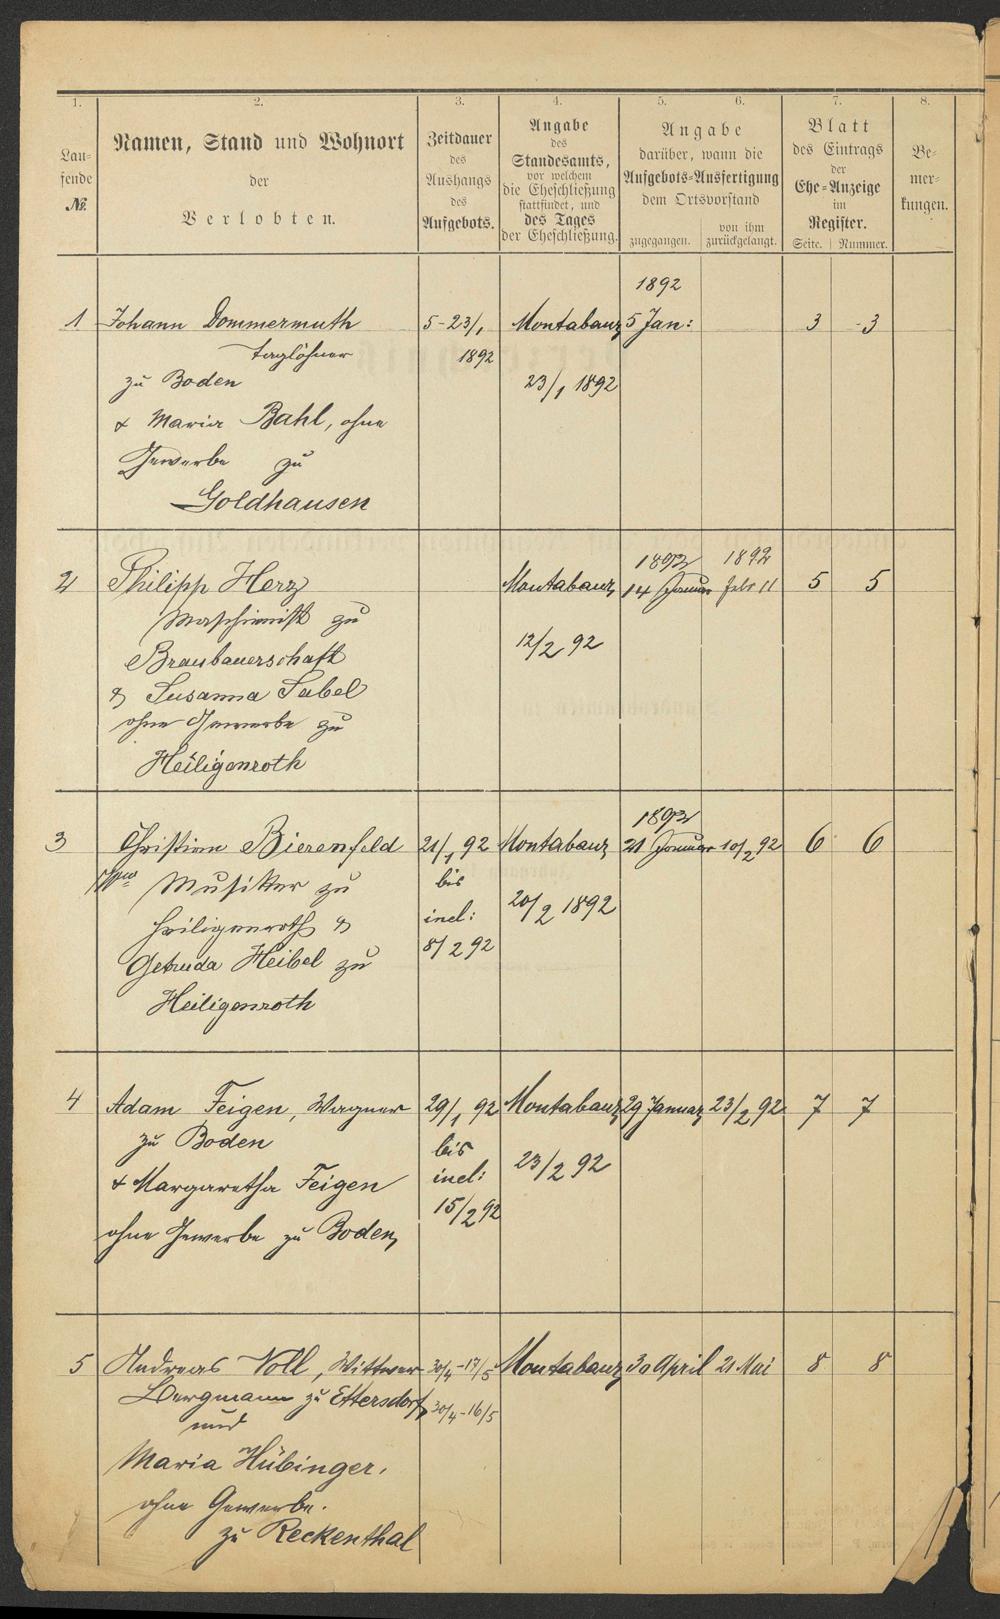 1. 2. 3. 4. 5. 6. 7. 8.
Lau-
fende
No.
Namen, Stand und Wohnort
der
Verlobten.
Zeitdauer
des
Aushangs
des
Aufgebots.
Angabe
des
Standesamts,
vor welchem
die Eheschließung
stattfindet, und
des Tages
der Eheschließung.
Angabe
darüber, wann die
Aufgebots-Ausfertigung
dem Ortsvorstand
zugegangen.
von ihm
zurückgelangt.
Blatt
des Eintrags
der
Ehe-Anzeige
im
Register.
Seite. Nummer.
Be-
mer-
kungen.
1892
1 Johann Dommermuth 5-23/1 Montabaur 5 Jan: 3 3
Taglöhner 1892
zu Boden 23/1 1892
& Maria Bahl, ohne
Gewerbe zu
Goldhausen
1892 1892
2 Philipp Herz Montabaur 14 Januar Febr 11 5 5
Maschinist zu
Braubauerschaft 12/2 92
& Susanna Sabel
ohne Gewerbe zu
Heiligenroth
1892
3 Christian Bierenfeld 21/1 92 Montabaur 21 Januar 10/2 92 6 6
Musiker zu bis
Heiligenroth & incl: 20/2 1892
Getruda Heibel zu 8/2 92
Heiligenroth
4 Adam Feigen, Wagner 29/1 92 Montabaur 29 Januar 23/2 92 7 7
zu Boden bis
& Margaretha Feigen incl: 23/2 92
ohne Gewerbe zu Boden 15/2 92
5 Andreas Noll, Wittwer 30/4-17/5 Montabaur 30 April 21 Mai 8 8
Bergmann zu Ettersdorf 30/4-16/5
und
Maria Hübinger,
ohne Gewerbe.
zu Reckenthal